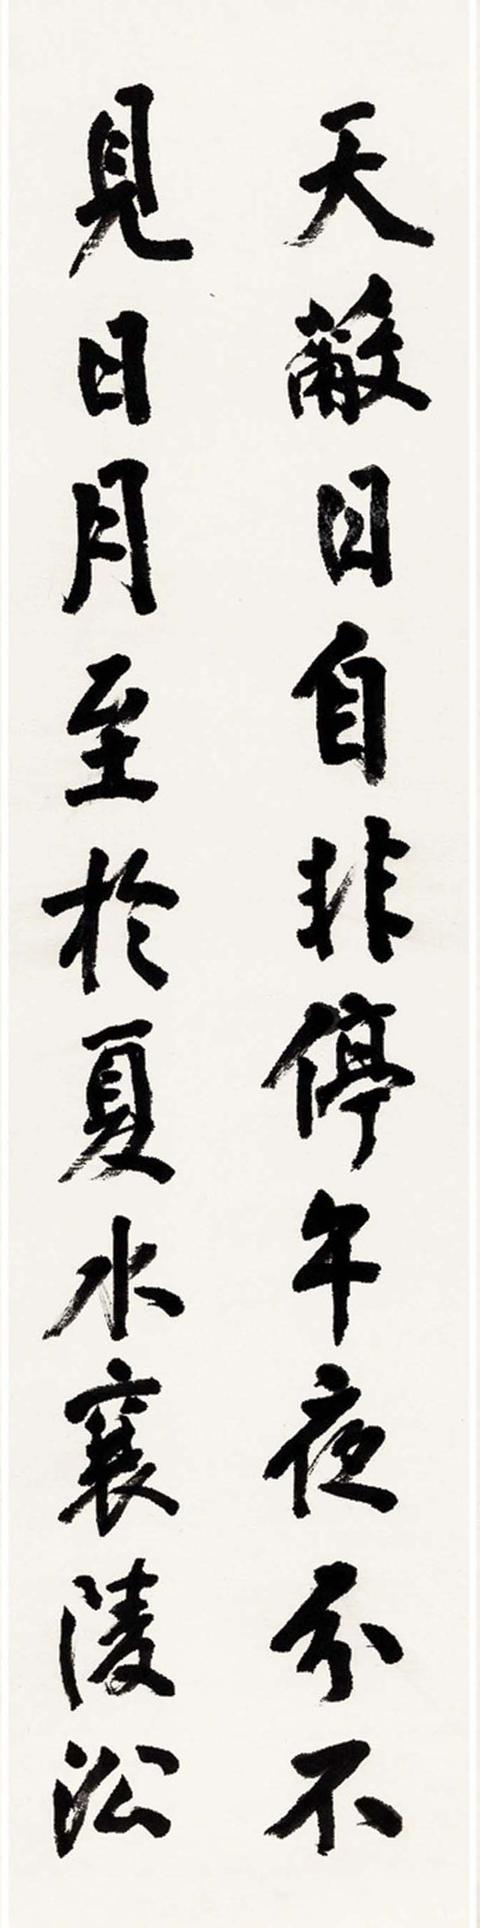 天蔽日自非停午夜分不
見日月至於夏水襄陵沿